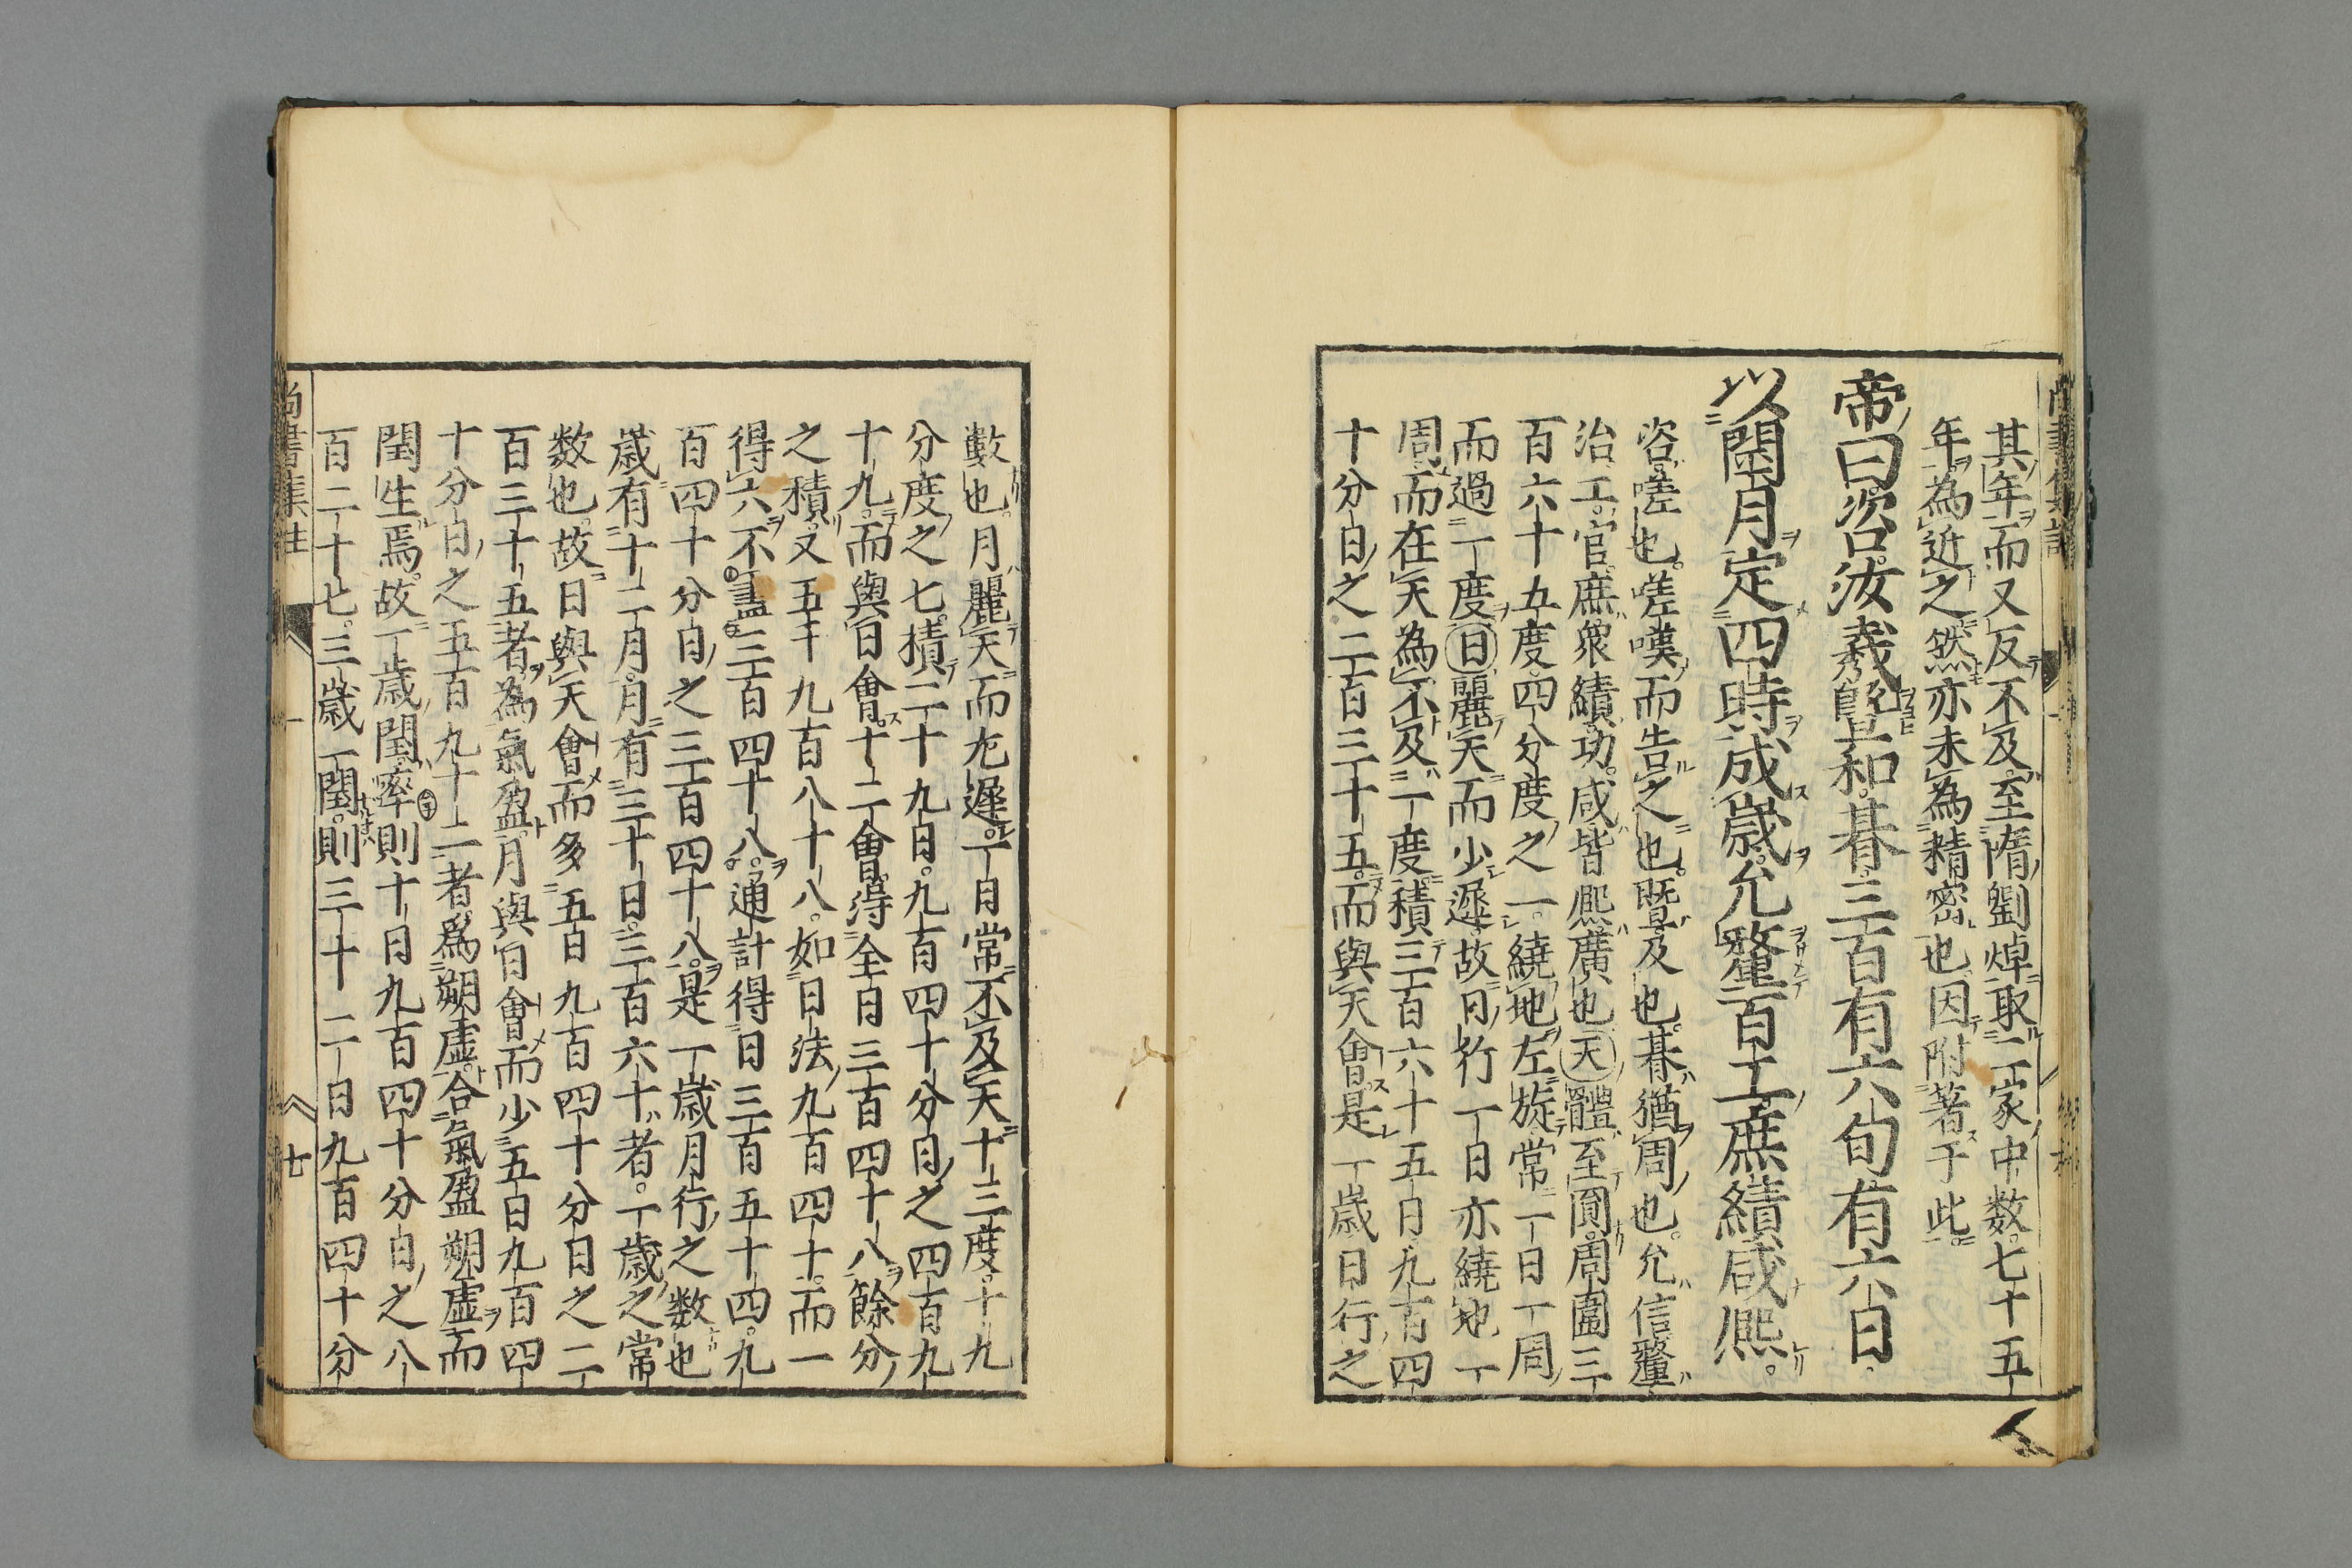 其年而又反不及至隋劉焯取二家中数七十五
年為近之然亦未為精密也因附著于此
帝曰咨汝羲曁和朞三百有六旬有六日
以閏月定四時成歲允釐百工庶績咸熙
咨嗟也嗟嘆而告之也曁及也朞猶周也允信釐
治工官庶衆績功咸皆熈廣也天體至圓周圍三
百六十五度四分度之一繞地左旋常一日一周
而過一度日麗天而少遲故日行一日亦繞地一
周而在天為不及一度積三百六十五日九百四
十分日之二百三十五而與天會是一歲日行之
數也月麗天而尤遲一日常不及天十三度十九
分度之七積二十九日九百四十分日之四百九
十九而與日會十二會得全日三百四十八餘分
之積又五千九百八十八如日法九百四十而一
得六不盡三百四十八通計得日三百五十四九
百四十分日之三百四十八是一歲月行之数也
歲有十二月月有三十日三百六十者一歲之常
数也故日與天會而多五日九百四十分日之二
百三十五者為氣盈月與日會而少五日九百四
十分日之五百九十二者爲朔虛合氣盈朔虛而
閏生焉故一歲閏率則十日九百四十分日之八
百二十七三歲一閏則三十二日九百四十分
尚書集註
七